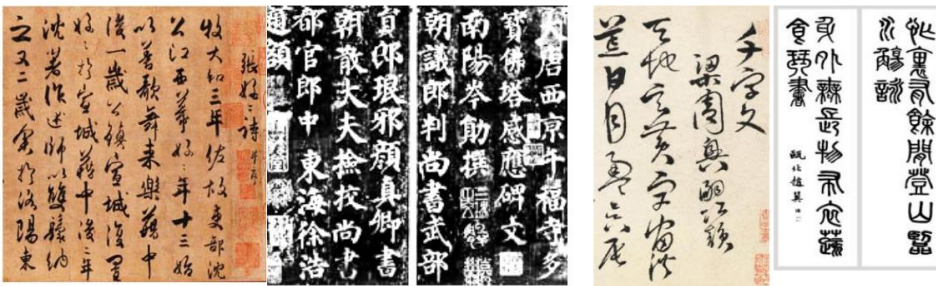 張好好詩 并序
牧大和三年佐故吏部沈
公江西幕好好年十三始
以善歌舞来樂籍中
後一歲公鎮宣城復置
好好於宣城籍中後二年
沈著作述師以雙鬟納
之又二歲余於洛陽東
大唐西京千福寺多
寶佛塔感應碑文
南陽岑勛撰
朝議郎判尚書武部
員外郎琅邪顏真卿書
朝散大夫撿挍尚書
都官郎中 東海徐浩
題額
千字文
梁周興嗣次韻
天地玄黃宇宙洪
荒日月盈昃辰
心裏有餘閒登山臨
水觴詠
身外無長物布衣蔬
食琴書
甌北趙翼